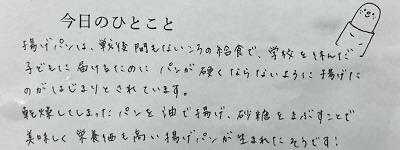 今日のひとこと
揚げパンは、戦後間もないころの給食で、学校を休んだ
子どもに届けるために パンが硬くならないように揚げた
のがはじまりとされています。
乾燥してしまったパンを油で揚げ、砂糖をまぶすことで
美味しく栄養価も高い揚げパンが生まれたそうです!